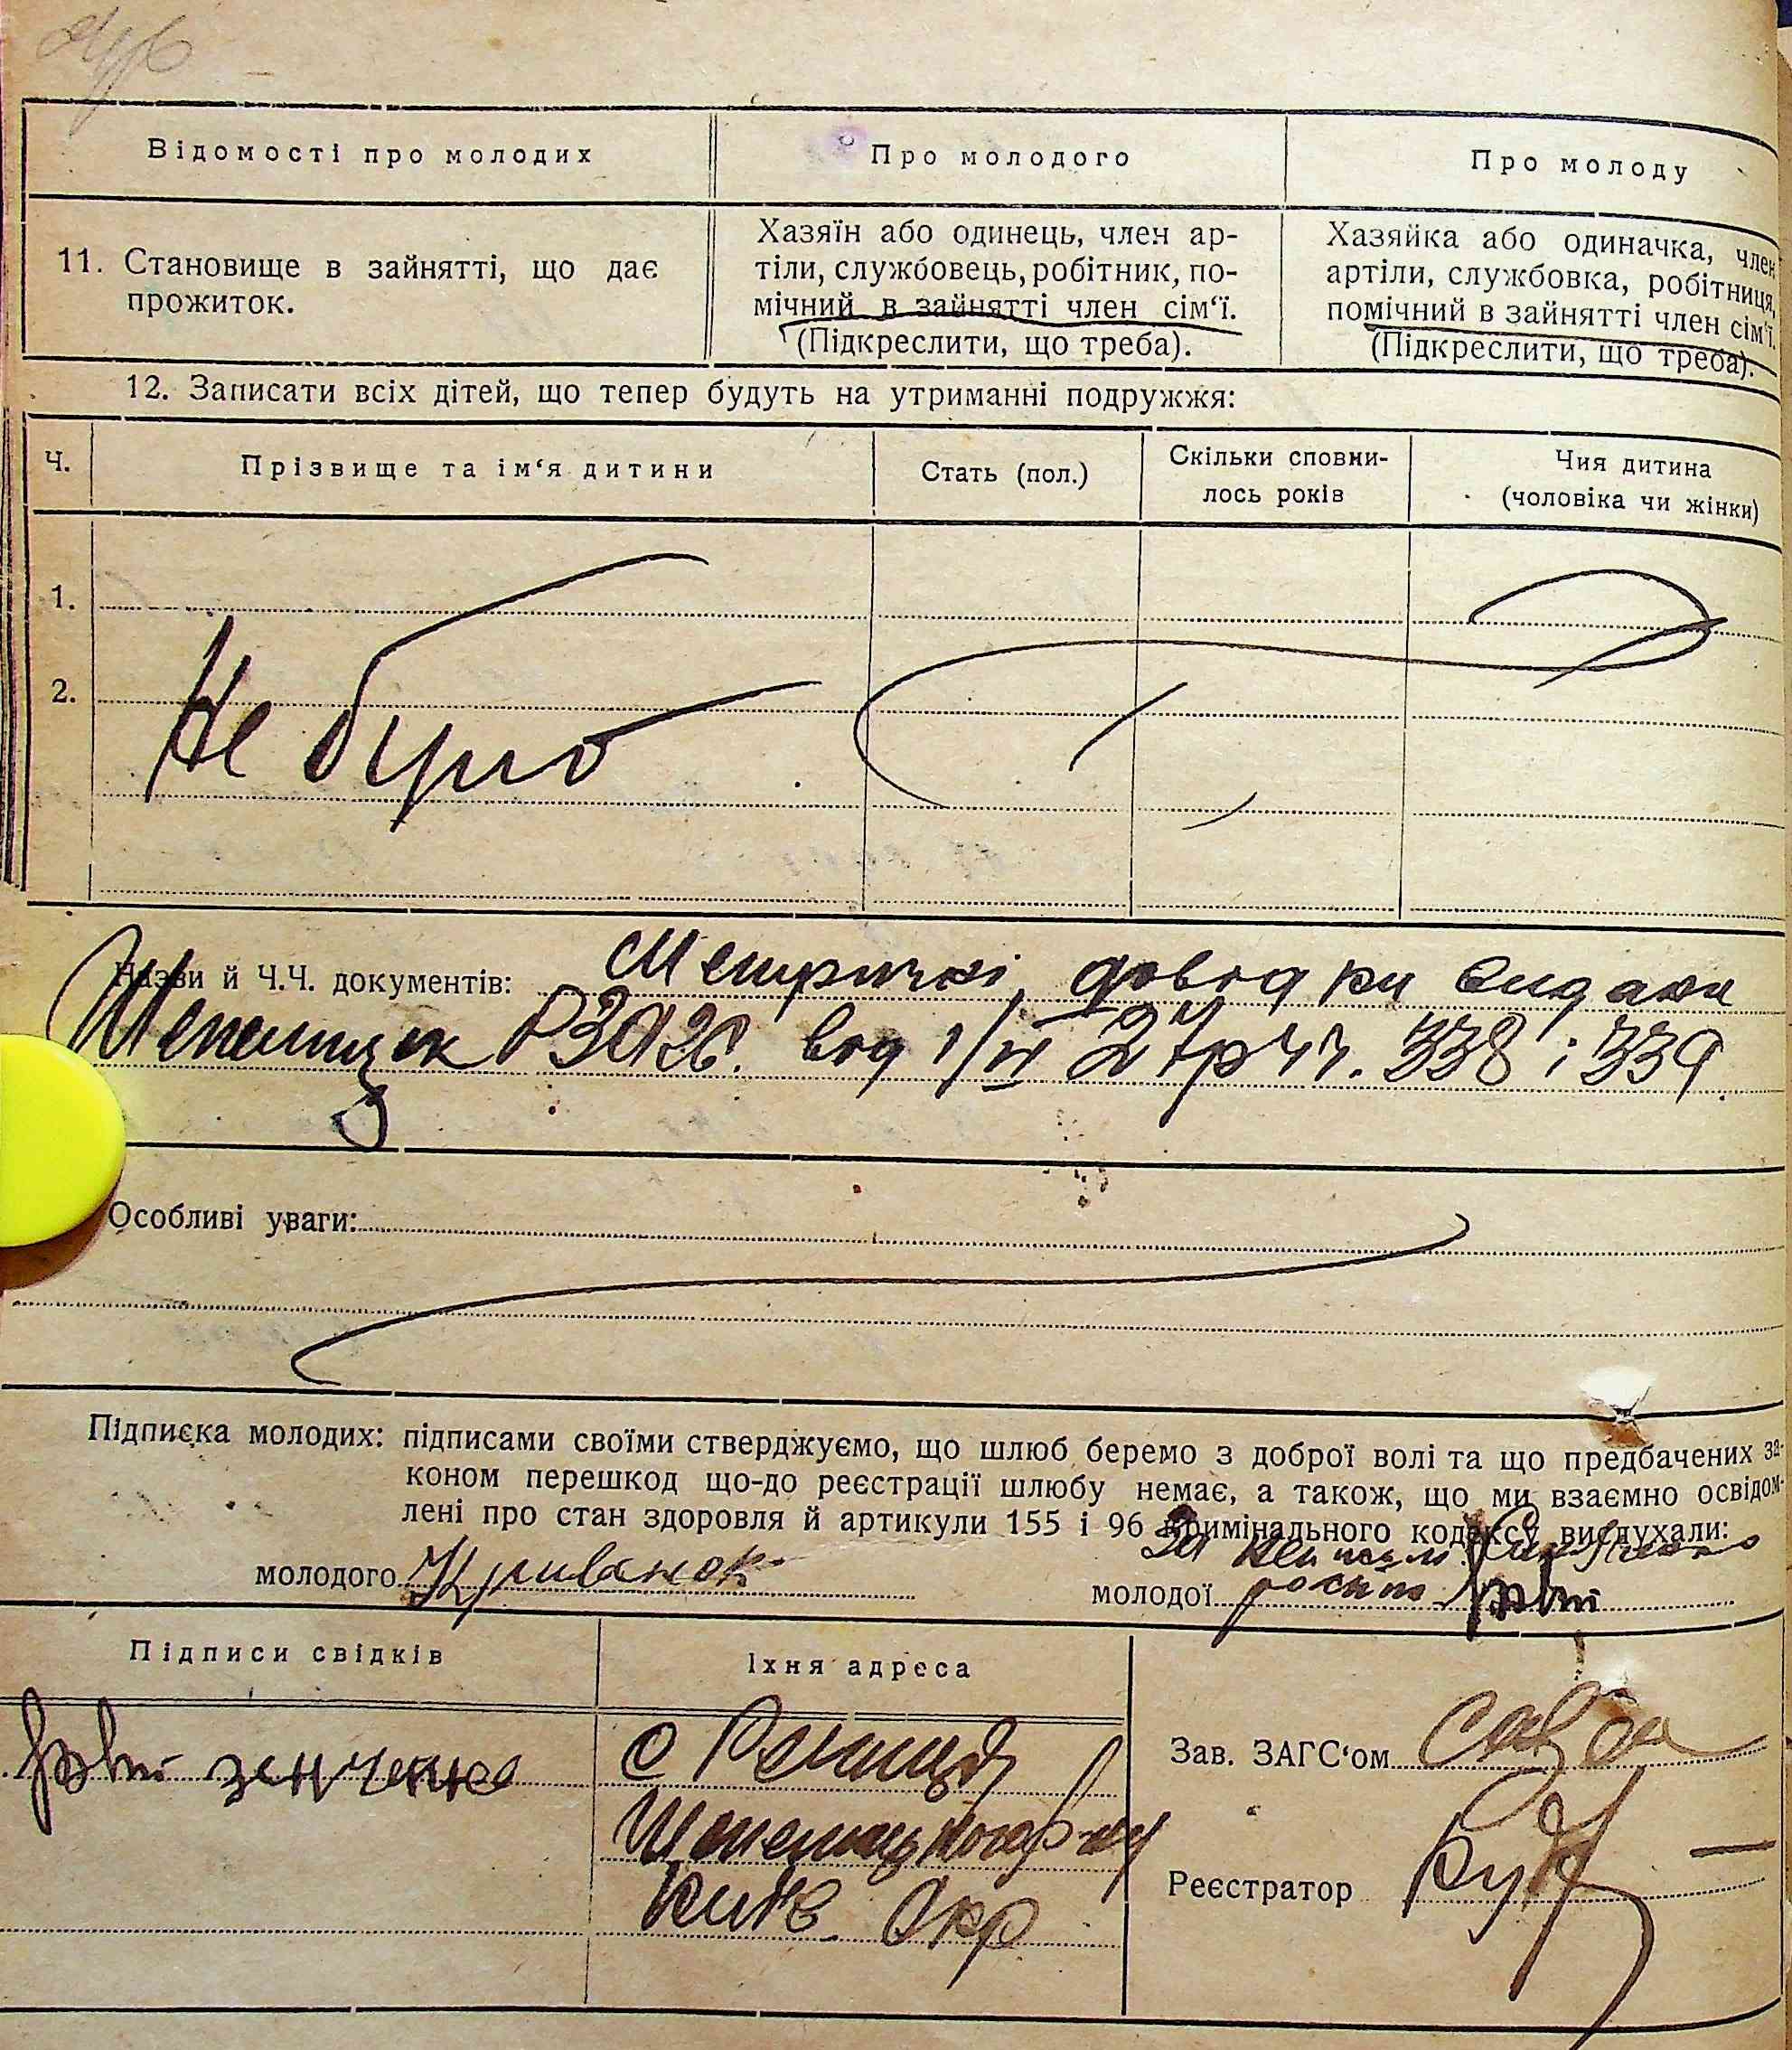 Відомості про молодих
Про молодого
Про молоду
11. Становище в зайнятті, що дає
прожиток.
Хазяїн або одинець, член ар-
тіли, службовець, робітник, по-
мічний в зайнятті член сім‘ї.
(Підкреслити, що треба).
Хазяйка або одиначка, член
артіли, службовка, робітниця,
помічний в зайнятті член сім‘ї.
(Підкреслити, що треба).
12. Записати всіх дітей, що тепер будуть на утриманні подружжя:
Ч.
Прізвище та ім‘я дитини
Стать (пол.)
Скільки сповни-
лось років
Чия дитина
(чоловіка чи жінки)
1.
2.
Не було
Назви й Ч.Ч. документів: Метричні довідки видани
Шепелицьк РЗАГС. від 1/VI 27р чч. 338 і 339
Особливі уваги:
Підписка молодих: підписами своїми стверджуємо, що шлюб беремо з доброї волі та що предбачених за-
коном перешкод що-до реєстрації шлюбу немає, а також, що ми взаємно освідом-
лені про стан здоровля й артикули 155 і 96 Кримінального кодексу вислухали:
молодого
молодої
За
Підписи свідків
Їхня адреса
зенченко
с
Шепелицького р-ну
Київ. Окр
Зав. ЗАГС‘ом
Реєстратор